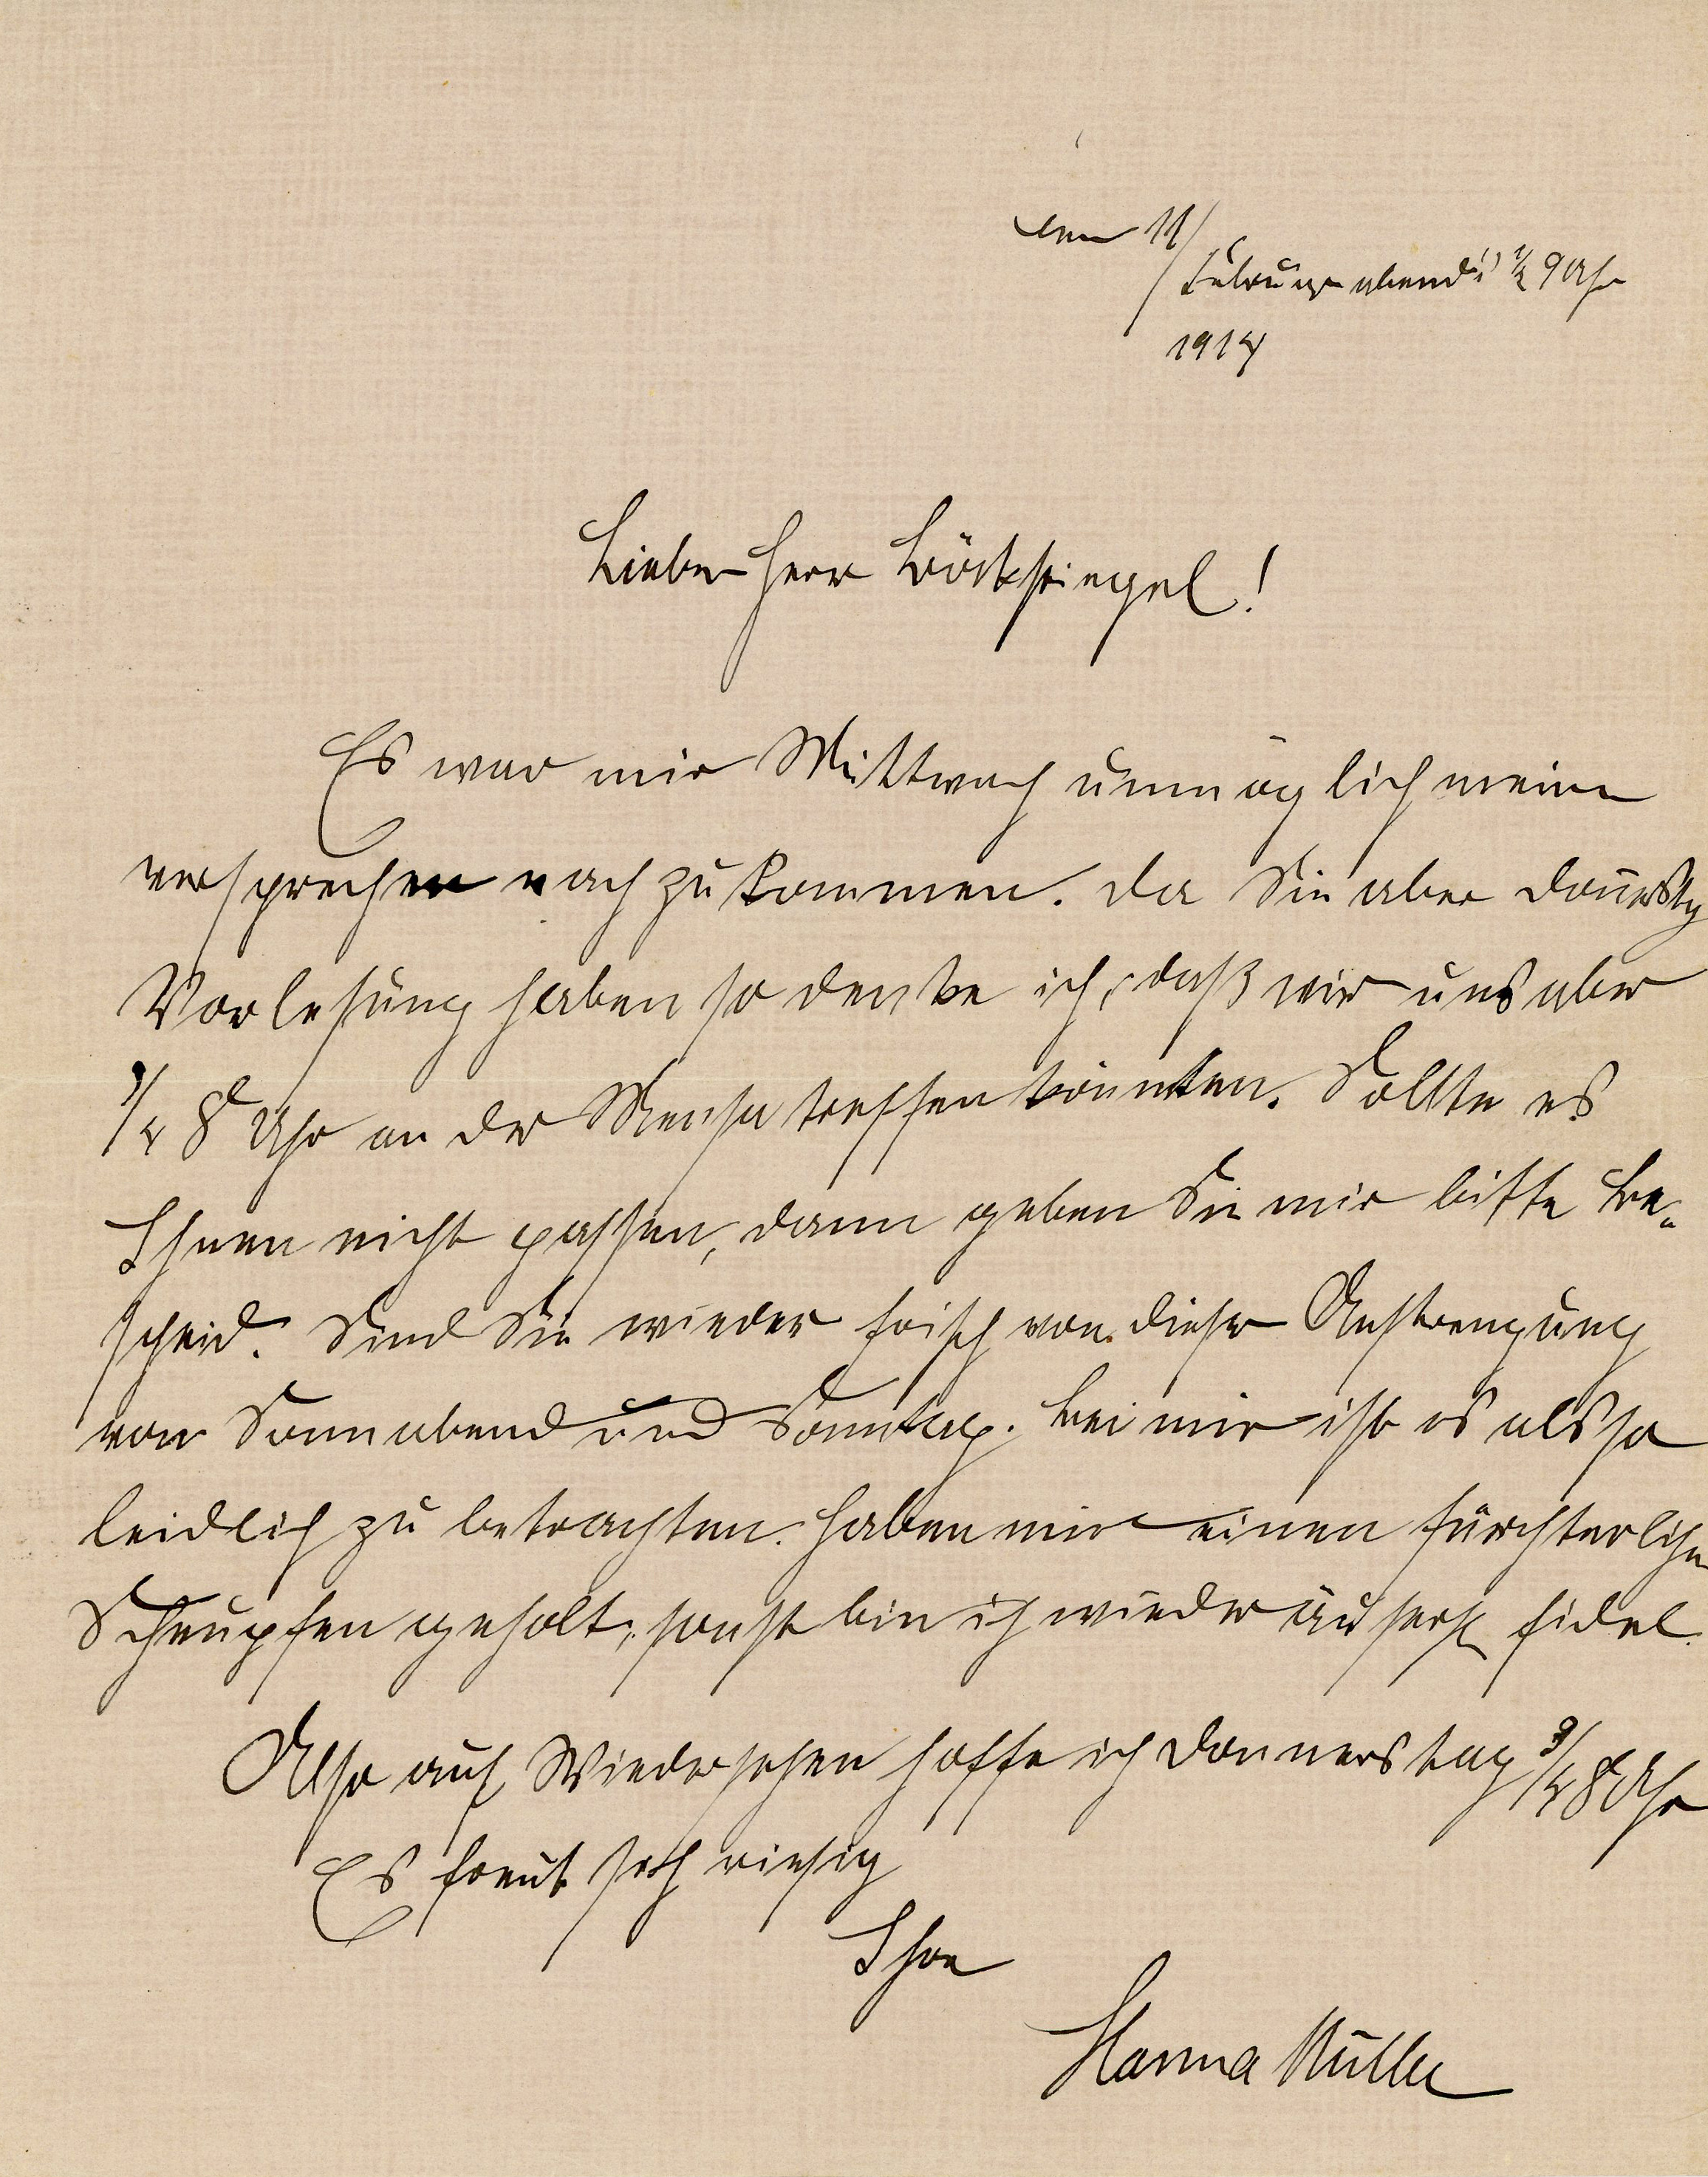 den 11/
Februar abends ½ 9 Uhr
1914
Lieber Herr Böckstiegel!
Es war mir Mittwoch unmöglich mein
versprechen nach zu kommen. Da Sie aber Donerstg
Vorlesung haben so denke ich, daß wir uns aber
¾ 8 Uhr an der Mensa treffen könnten. Sollte es
Ihnen nicht passen, dann geben Sie mir bitte Be-
scheid. Sind Sie wieder frisch von dieser Anstrengung
von Sonnabend und Sonntag. Bei mir ist es als so
leidlich zu betrachten. Haben mir einen fürchterlichen
Schnupfen geholt, sonst bin ich wieder äuserst fidel.
Also auf Wiedersehen hoffe ich Donnerstag ¾ 8 Uhr
Es freut sich riesig
Ihre
Hanna Müller